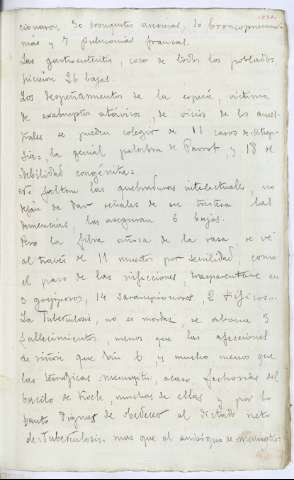 cionaron. 30 bronquitis anormal, 10 bronconeumo-
nias y 7 pulmonías francas.
Las gastroenteritis, coco de todos los poblados,
hicieron 26 bajas.
Los despeñamientos de la especie, víctima
de exabruptos atávicos, de vicios de los ances-
trales se pueden colegir de 11 casos de
la genial palabra de Parrot, y 18 de
debilidad congénita.
No faltan las quebraduras intelectuales, no
dejan de dar señales de su tristeza las
demencias, las aseguran 6 bajas.
Pero la fibra añosa de la raza, se vé
al través de 11 muertos por senilidad; como
el paso de las infecciones, trasparentase en
3 gripposos, 14 sarampionosos, 2 tíficos.
La Tuberculosis, no es mortal, se abona 3
fallecimientos, menos que las afecciones
de riñón que dán 6 y mucho menos que
las meningitis, acaso fechorías del
bacilo de Koch, muchas de ellas y por lo
tanto dignas de obedecer al dictado neto
de Tuberculosis, mas que al ambiguo de meningitis